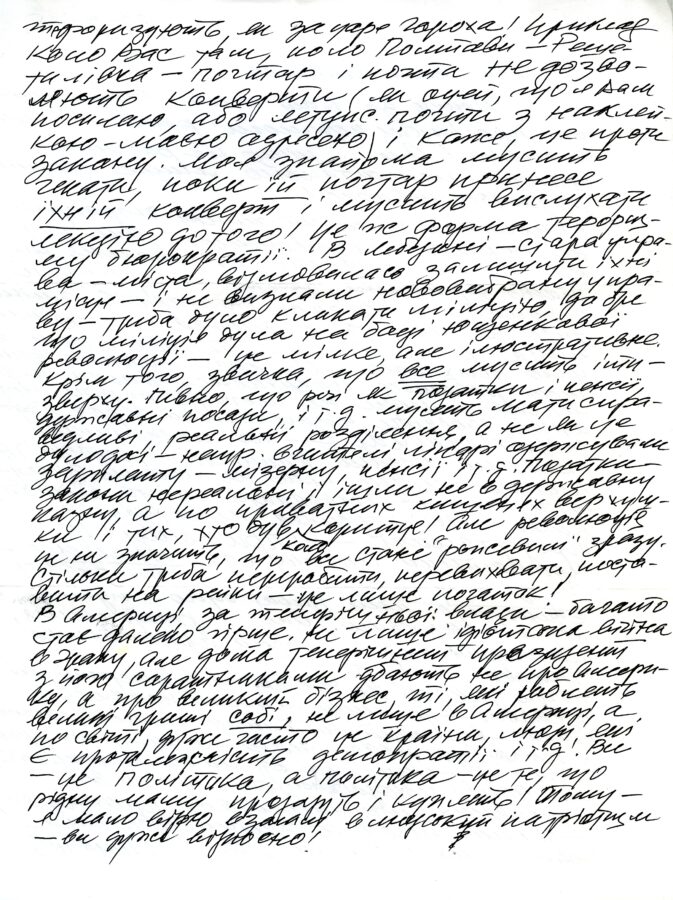 тероризують, як за царя гороха! Приклад
коло Вас там, коло Полтави – Реше-
тилівка – почтар і пошта не дозво-
ляють конверти (як оцей, що я Вам
посилаю, або летунс. почти з наклей-
кою-моєю адресою) і каже, це проти
закону. Моя знайома мусить
чекати, поки їй почтар принесе
їхній конверт і мусить вислухати
лекцію до того! Це ж форма терориз-
му бюрократії. В Лебедині – стара упра-
ва – міста, відмовилась залишити їхні
місця – і не визнали нововибрану упра-
ву – треба було кликати міліцію, добре
що міліція була на боці ющенкавої
революції – це мілке, але ілюстративне.
Крім того, звичка, що все мусить іти –
зверху. Певно, що речі як податки і пенсії,
державні посади, і т.д. мусять мати спра-
ведливі, реальні розділення, а не як це
було досі – напр. вчителі, лікарі одержували
зарплату – мізерну, пенсії і т.д. Податки –
закони нереальні і ішли не в державну
казну, а по приватних кишенях верхуш-
ки і тих, хто був коритує! Але революція
це не значить, що все стане "рожевим" зразу.
Стільки треба переробити, перевиховати, поста-
вити на рейки – це лише початок!
В Америці за теперішньої влади – багато
стає далеко гірше. Не лише ідіотська війна
в Іраку, але дота теперішний президент
з його соратниками дбають не про Амери-
ку, а про великий бізнес, ті, які роблять
великі гроші собі, не лише в Америці, а
по світі, дуже часто це країни, люди, які
є протилежність демократії і т.д! Все
– це політика, а політика – це те, що
рідну маму продадуть і куплять! Тому –
я мало вірю взагалі в людський патріотизм
– ви дуже відносно!